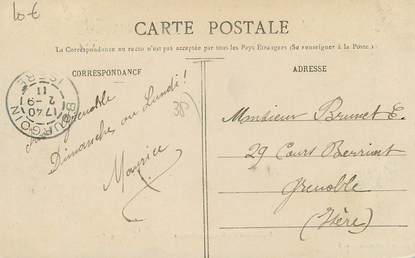 10 €
CARTE POSTALE
La Correspondance au recto n'est pas acceptée par tous les Pays Etrangers (Se renseigner à la Poste.)
CORRESPONDANCE
ADRESSE
Grenoble
Dimanche ou Lundi !
Maurice
38
BOURGOIN
17 40
2 -9
11
ISÈRE
Monsieur Brunet E.
29 Cours Berriat
Grenoble
(Isère)